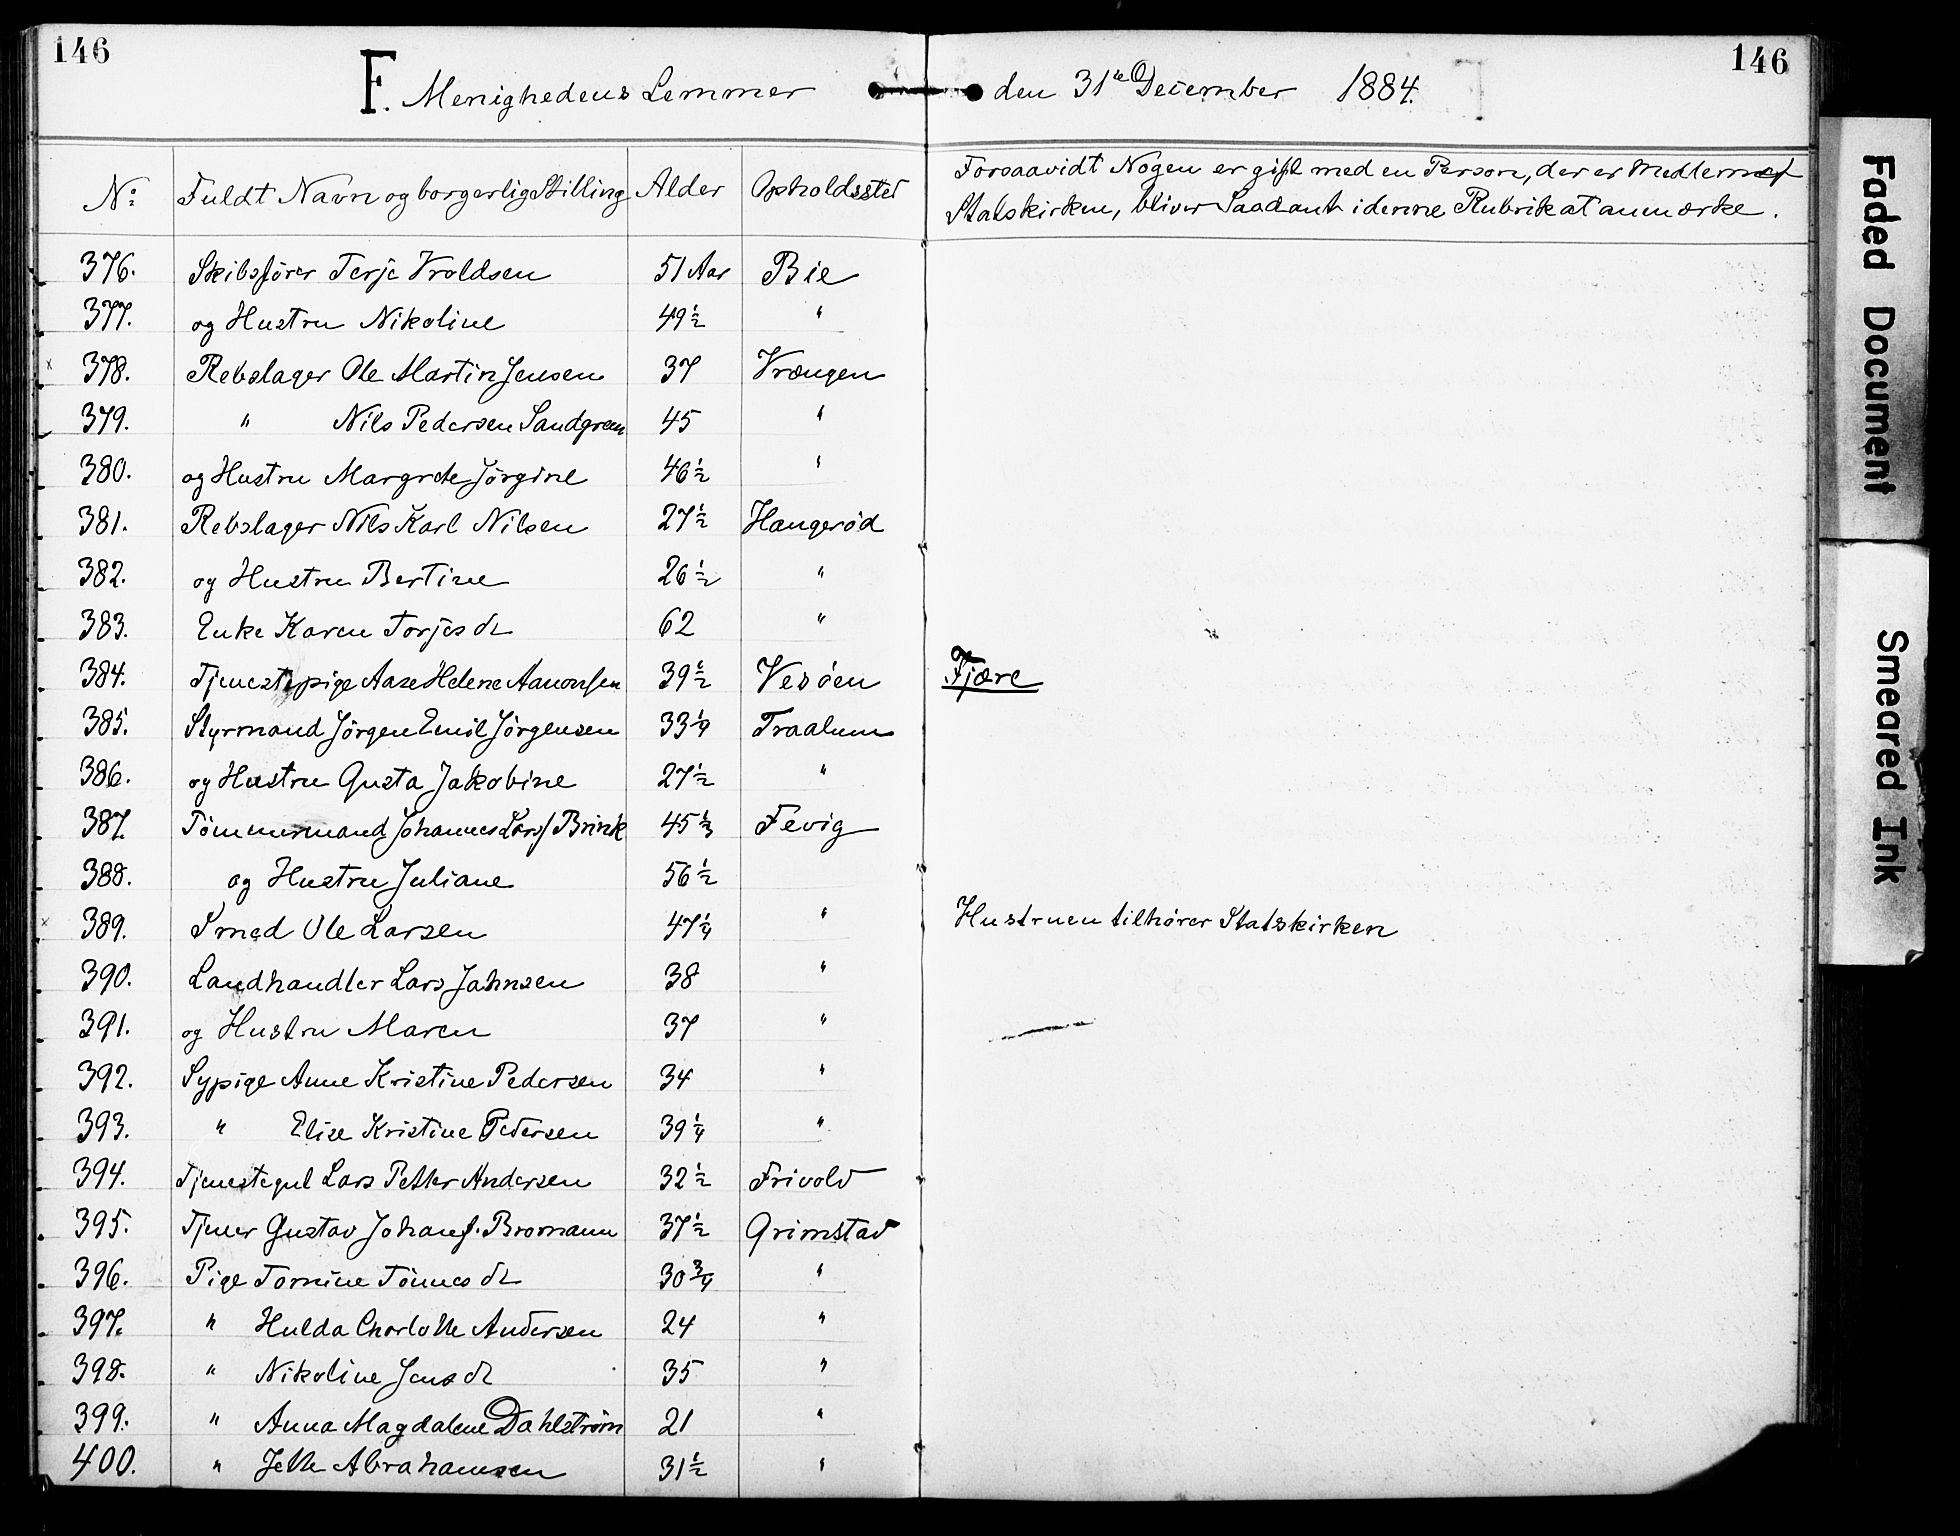 146
146
F. Menighedens Lemmer den 31te December 1884.
No: Fuldt Navn og borgerlig Stilling Alder Opholdssted
Forsaavidt Nogen er gift med en Person, der er Medlem af
Statskirken, bliver Saadant i denne Rubrik at anmærke.
376. Skibsfører Terje Vroldsen 51 Aar Bie
377. og Hustru Nikoline 49 1/2 "
378. Rebslager Ole Martin Jensen 37 Vrængen
379. " Nils Pedersen Sandgren 45 "
380. og Hustru Margrete Jørgine 46 1/2 "
381. Rebslager Nils Karl Nilsen 27 1/2 Haugerød
382. og Hustru Bertine 26 1/2 "
383. Enke Karen Torjesdr 62 "
384. Tjenestepige Aase Helene Aanonsen 39 1/2 Vesøen Fjære
385. Styrmand Jörgen Emil Jörgensen 33 1/4 Traalum
386. og Hustru Gusta Jakobine 27 1/2 "
387. Tömmermand Johannes Larss Brink 45 1/3 Fevig
388. og Hustru Juliane 56 1/2
389. Smed Ole Larsen 47 1/4 " Hustruen tilhører Statskirken
390. Landhandler Lars Jahnsen 38 "
391. og Hustru Maren 37 "
392. Sypige Anne Kristine Pedersen 34 "
393. " Elise Kristine Pedersen 39 1/4 "
394. Tjenestegut Lars Petter Andersen 32 1/2 Frivold
395. Tjener Gustav Johans. Bromann 37 1/2 Grimstad
396. Pige Tomine Tönnesdr 30 3/4 "
397. " Hulda Charlotte Andersen 24 "
398. " Nikoline Jensdr 35 "
399. " Anna Magdalene Dahlström 21 "
400. " Jette Abrahamsen 31 1/2 "
Faded Document
Smeared Ink